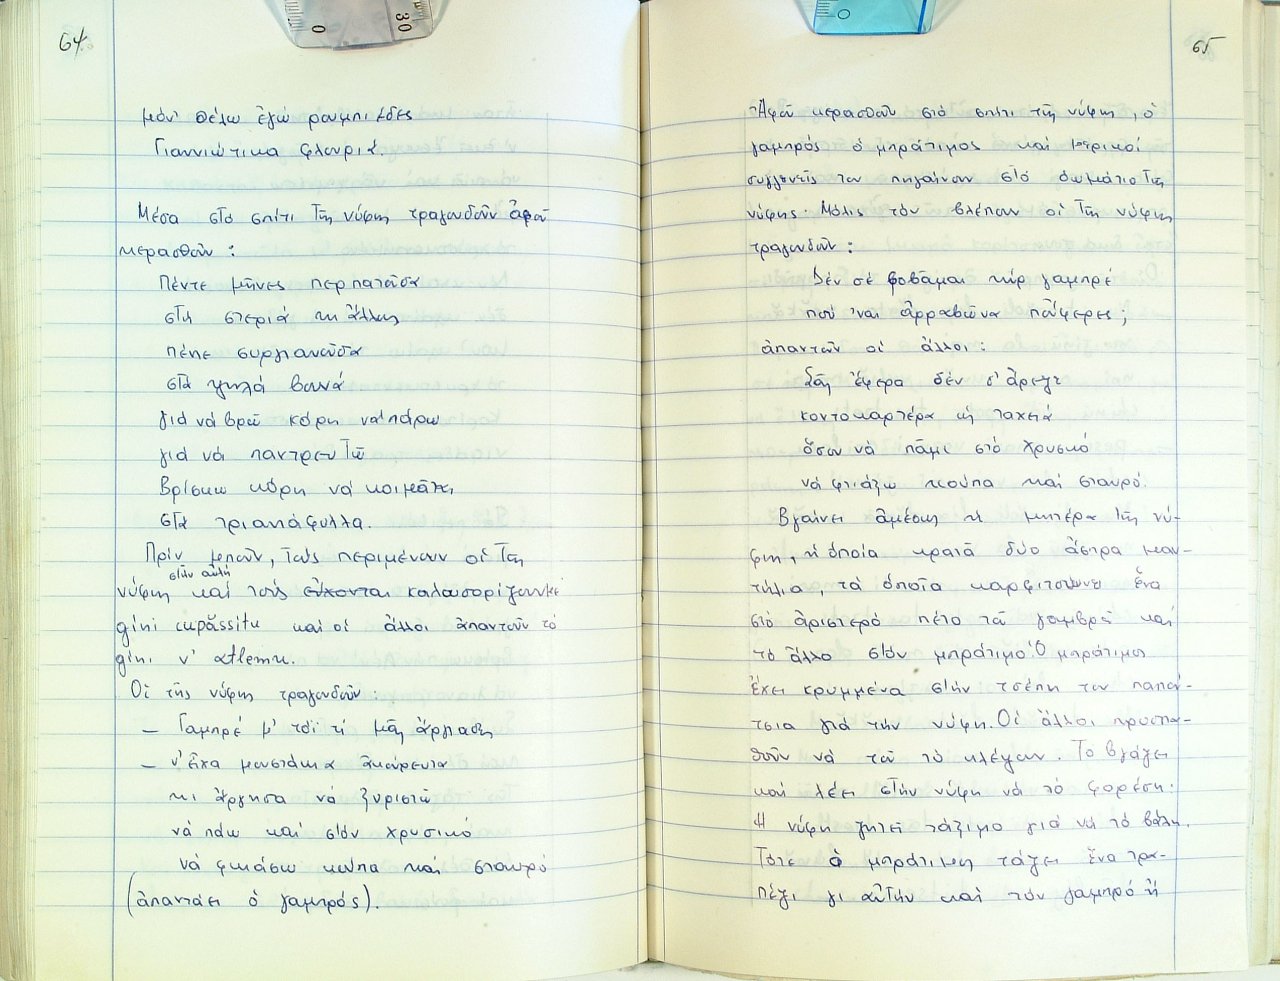 64
μόν' θέλω ἐγώ ρουμπιέδες
Γιαννιώτικα φλουριά.
Μέσα στό σπίτι τῆς νύφης τραγουδοῦν ἀφοῦ
κερασθοῦν :
Πέντε μῆνες περπατοῦσα
στή στεριά κι ἄλλες
πέντε συργιανοῦσα
στά ψηλά βουνά
γιά νά βρῶ κόρη νά πάρω
γιά νά παντρευτῶ
Βρίσκω κόρη νά κοιμᾶται
στά τριαντάφυλλα.
Πρίν μποῦν, τούς περιμένουν οἱ τῆς
στήν αὐλή
νύφης καί τούς εὔχονται καλωσορίζουν μέ
gini cupăssitu καί οἱ ἄλλοι ἀπαντοῦν τό
gini v' atlemu.
Οἱ τῆς νύφης τραγουδοῦν :
– Γαμπρέ μ' τσί τί μᾶς ἄργησες
– ν' εἶχα μουστάκια ἀκούρευτα
κι ἄργησα νά ξυριστῶ
νά πάω καί στόν χρυσικό
νά φκιάσω κούπα καί σταυρό
(ἀπαντάει ὁ γαμπρός).
65
Ἀφοῦ κερασθοῦν στό σπίτι τῆς νύφης, ὁ
γαμπρός ὁ μπράτιμος καί μερικοί
συγγενεῖς του πηγαίνουν στό δωμάτιο τῆς
νύφης. Μόλις τόν βλέπουν οἱ τῆς νύφης
τραγουδοῦν :
Δέν σέ φοβᾶμαι κύρ γαμπρέ
πού 'ναι ἀρραβῶνα πὤφερες ;
ἀπαντοῦν οἱ ἄλλοι :
Σᾶς ἔφερα δέν σ' ἄρεγε
κοντοκαρτέρα ὡς ταχειά
ὅσου νά πᾶμε στό χρυσκό
νά φτιάξω κούπα καί σταυρό.
Βγαίνει ἀμέσως ἡ μητέρα τῆς νύ-
φης, ἡ ὁποία κρατᾶ δύο ἄσπρα μαν-
τήλια, τά ὁποῖα καρφιτσώνει ἕνα
στό ἀριστερό πέτο τοῦ γαμβροῦ καί
τό ἄλλο στόν μπράτιμο. Ὁ μπράτιμος
ἔχει κρυμμένα στήν τσέπη του παπού-
τσια γιά τήν νύφη. Οἱ ἄλλοι προσπα-
θοῦν νά τοῦ τό κλέψουν. Τό βγάζει
καί λέει στήν νύφη νά τό φορέση.
Ἡ νύφη ζητεῖ τάξιμο γιά νά τό βάλη.
Τότε ὁ μπράτιμος τάζει ἕνα τρα-
πέζι γι αὐτήν καί τόν γαμπρό ἤ